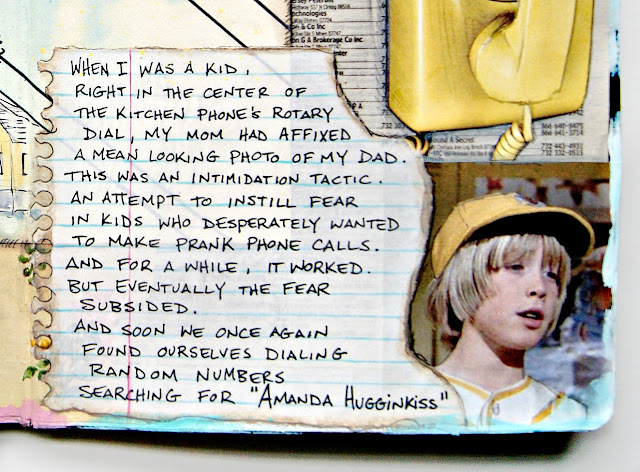 & Co Inc
G A Brokerage Co Inc
WHEN I WAS A KID,
RIGHT IN THE CENTER OF
THE KITCHEN PHONE'S ROTARY
DIAL, MY MOM HAD AFFIXED
A MEAN LOOKING PHOTO OF MY DAD.
THIS WAS AN INTIMIDATION TACTIC.
AN ATTEMPT TO INSTILL FEAR
IN KIDS WHO DESPERATELY WANTED
TO MAKE PRANK PHONE CALLS.
AND FOR A WHILE, IT WORKED.
BUT EVENTUALLY THE FEAR
SUBSIDED.
AND SOON WE ONCE AGAIN
FOUND OURSELVES DIALING
RANDOM NUMBERS
SEARCHING FOR "AMANDA HUGGINKISS"